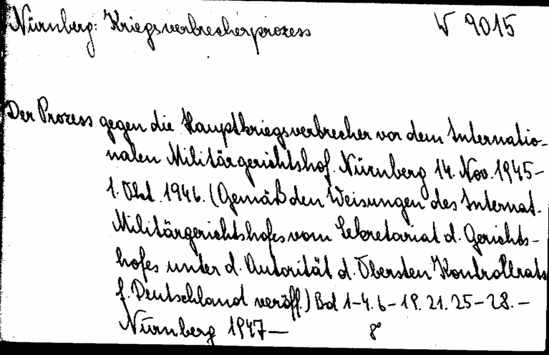 Nürnberg: Kriegsverbrecherprozess W 9015
Der Prozess gegen die Hauptkriegsverbrecher vor dem Internatio-
nalen Militärgerichtshof. Nürnberg 14. Nov. 1945-
1. Okt. 1946. (Gemäß den Weisungen des Internat.
Militärgerichtshofes vom Sekretariat d. Gerichts-
hofes unter d. Autorität d. Obersten Kontrollrats
f. Deutschland veröff.) Bd 1-4. 6-19. 21. 25-28.-
Nürnberg 1947- 8°